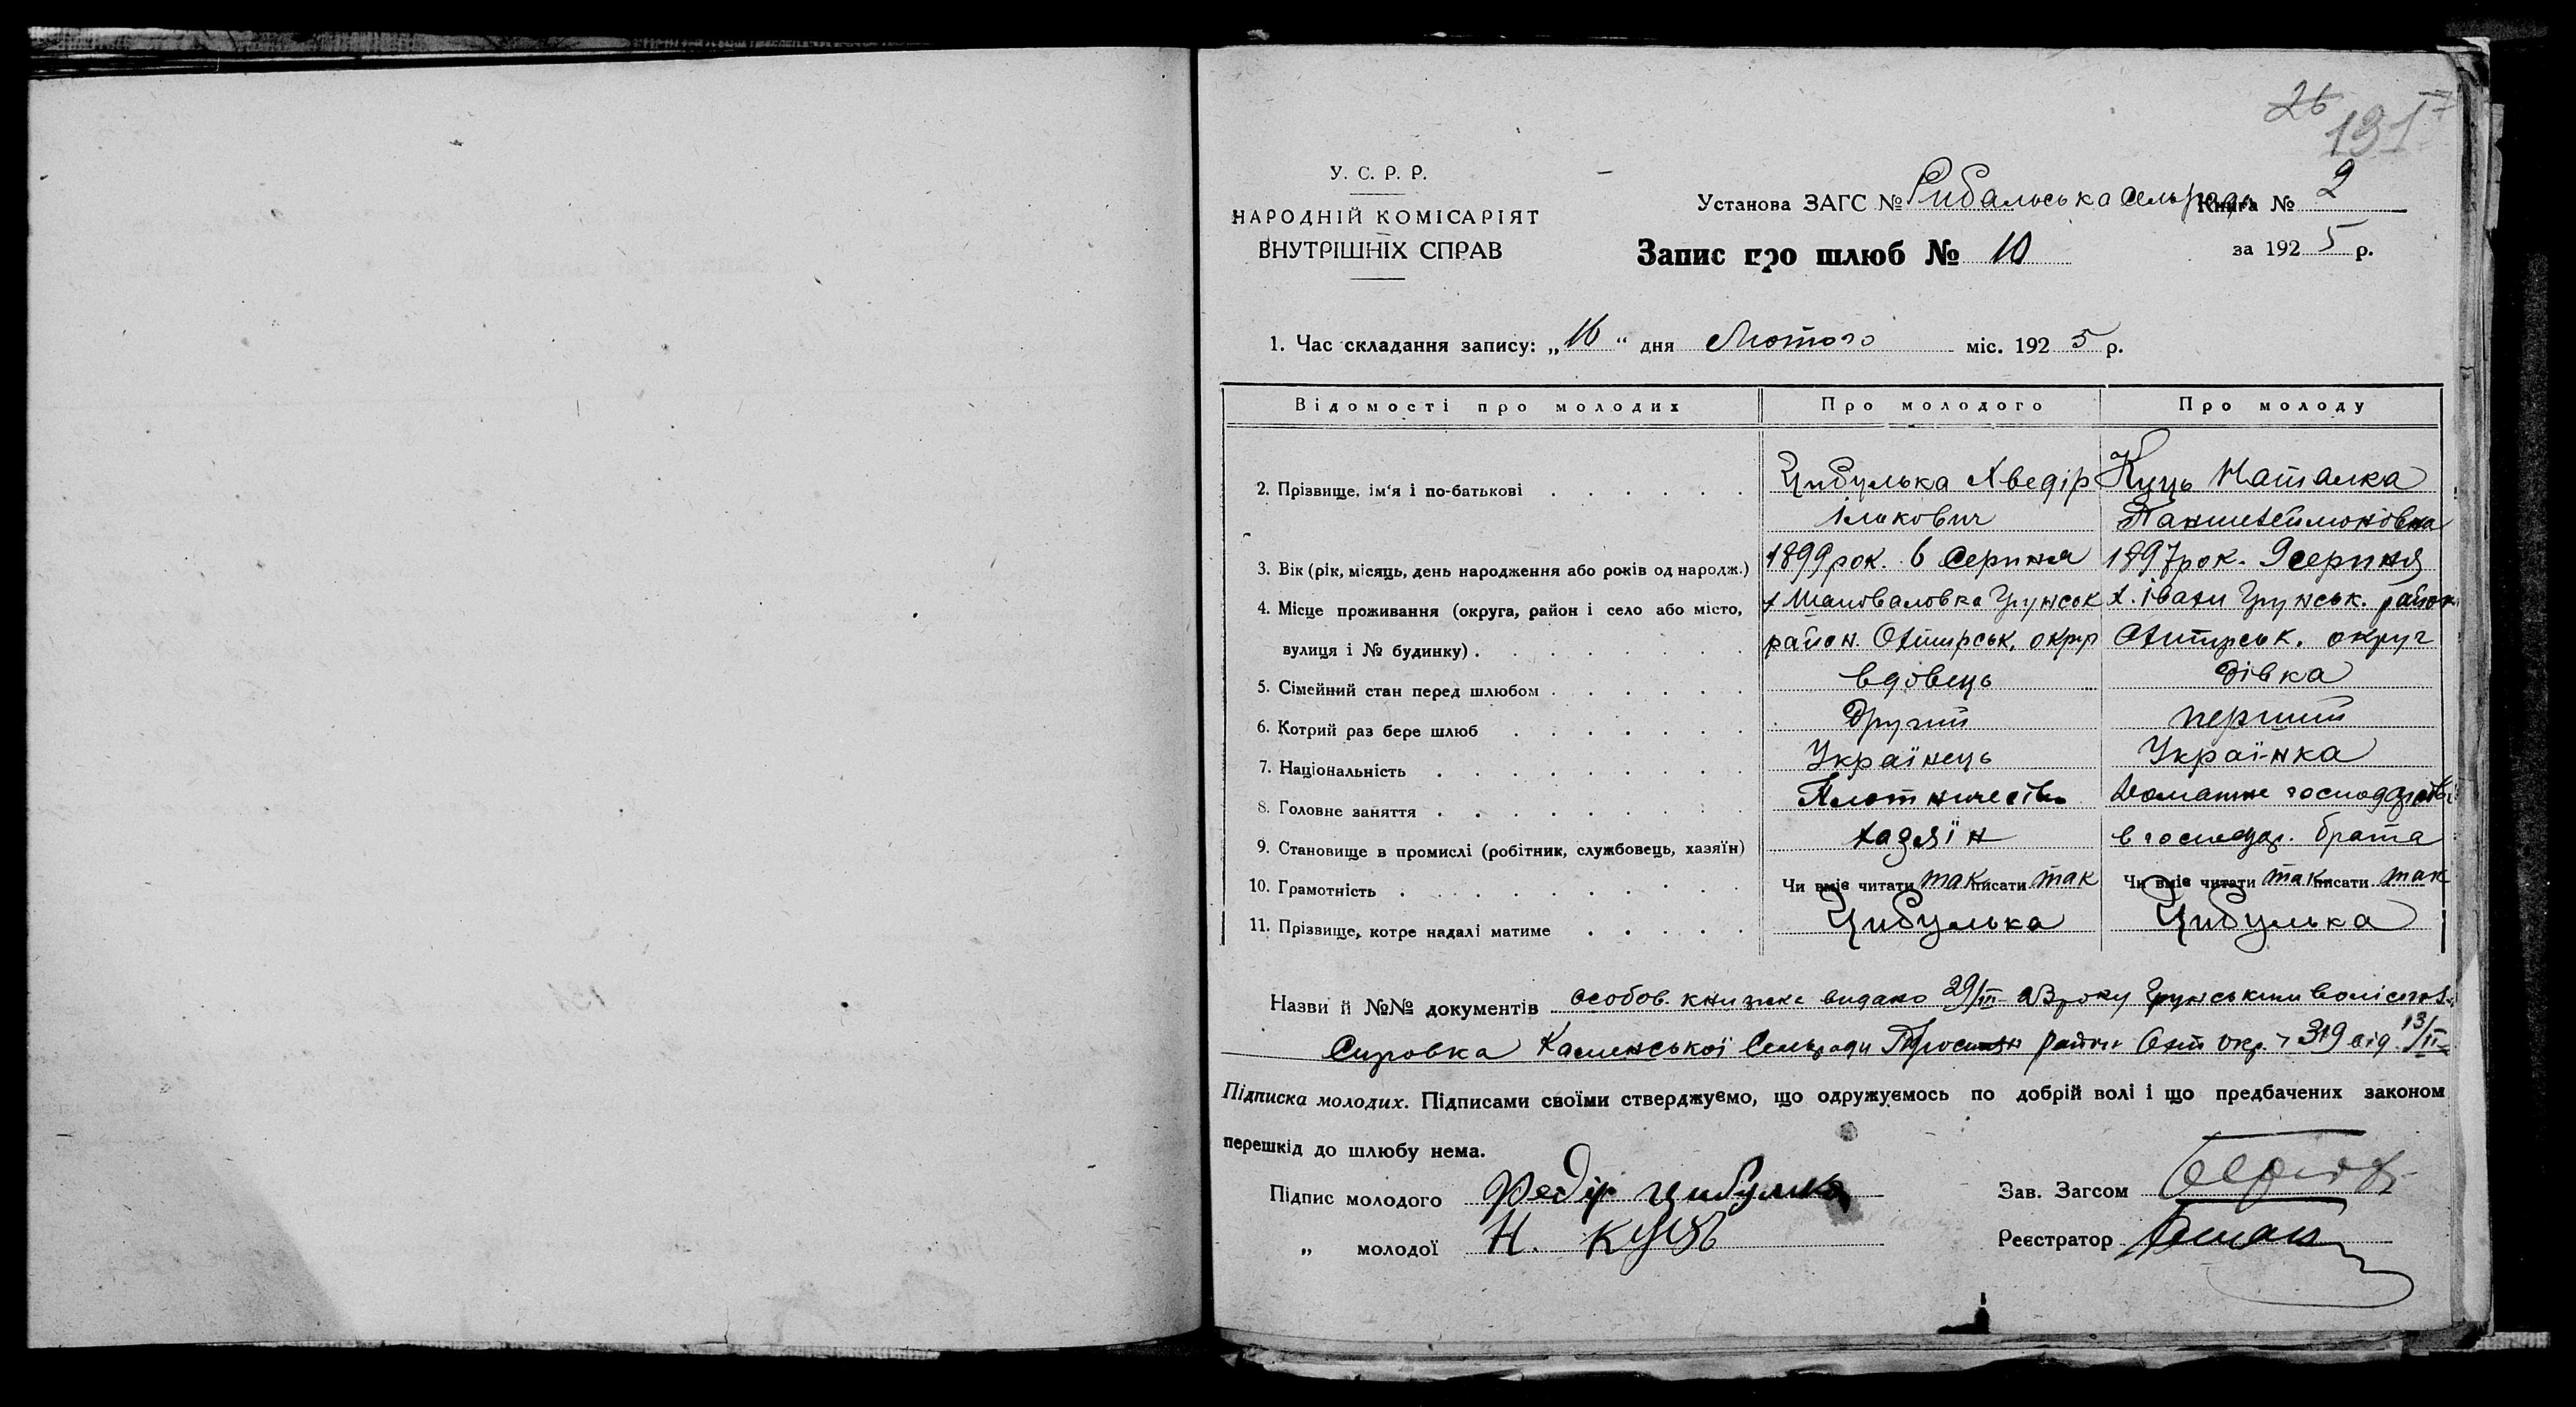 26
131
У. С. Р. Р.
НАРОДНІЙ КОМІСАРІЯТ
ВНУТРІШНІХ СПРАВ
Установа ЗАГС № Рибальська сельрада Книга № 2
Запис про шлюб № 10 за 1925 р.
1. Час складання запису: „16“ дня Лютого міс. 1925 р.
Відомості про молодих Про молодого Про молоду
2. Прізвище, ім'я і по-батькові Цибулька Хведір Куць Наталка
Ілікович Пантелеймоновна
3. Вік (рік, місяць, день народження або років од народж.) 1899 рок. 6 Серпня 1897 рок. 9 серпня
4. Місце проживання (округа, район і село або місто, х Шаповаловка Грунськ х. Івани Грунськ. район
вулиця і № будинку) район. Охтирськ. округ Охтирськ. округ
5. Сімейний стан перед шлюбом вдовець дівка
6. Котрий раз бере шлюб другий перший
7. Національність Українець Українка
8. Головне заняття Плотничество Домашнє господарство
9. Становище в промислі (робітник, службовець, хазяїн) хазяїн в господар. брата
10. Грамотність Чи вміє читати так писати так Чи вміє читати так писати так
11. Прізвище, котре надалі матиме Цибулька Цибулька
Назви й №№ документів особов. книжка видано 29/III-23 року Грунським
Справка Каменської Сельради район Охт окр. 319 від 13/II
Підписка молодих. Підписами своїми стверджуємо, що одружуємось по добрій волі і що предбачених законом
перешкід до шлюбу нема.
Підпис молодого Федір Цибулька Зав. Загсом
„ молодої Н. Куць Реєстратор